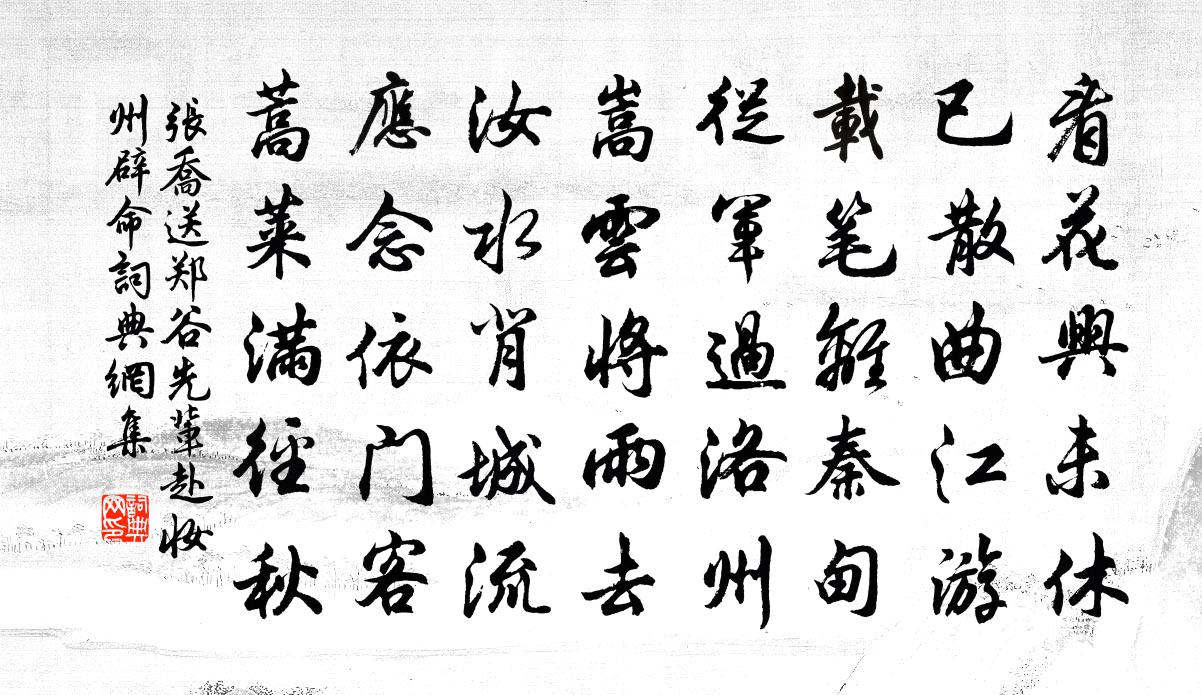 看花興未休
已散曲江游
載笔離秦甸
從軍過洛州
嵩雲將雨去
汝水背城流
應念依門客
蒿萊滿徑秋
張喬送郑谷先輩赴妝
州辟命詞典網集
詞典
网印